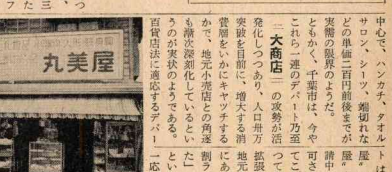 つ、三たフ
中心で、ハンカチ、タオル、
サロン、シーツ、端切れな
どの単価二百円前後までが
実需の限界のようだ。
ともかく、千葉市は、今や
これら一連のデパート乃至
大商店の攻勢が活
発化しつつあり、人口卅万
突破を目前に、増大する消
費層をいかにキャツチする
かで、地元小売店との角逐
も漸次深刻化しているとい
うのが実状のようである。
百貨店法に適応するデパー
は
屋”
屋“
請中
可さ
てこ
つて
拡張
地元
にあ
割ラ
た」
とい
一応
丸美屋